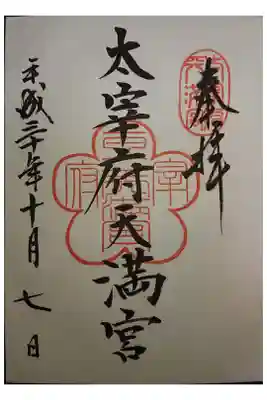 奉拝
太宰府天満宮
平成二十年十月七日